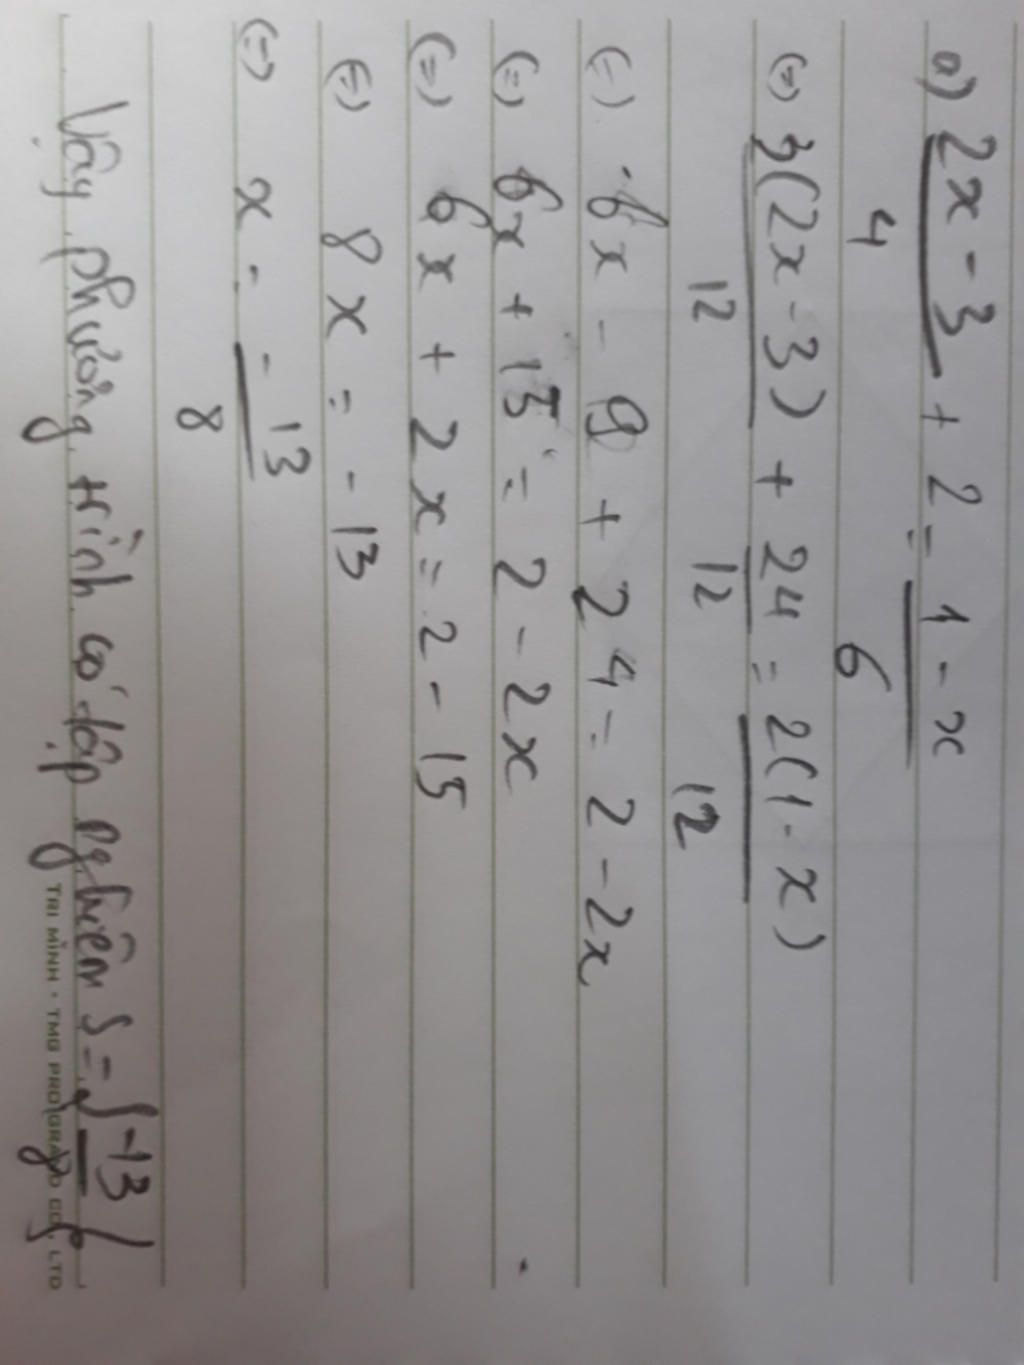 a) 2x - 3 + 2 = 1 - x
4 6
(=) 3(2x - 3) + 24 = 2(1 - x)
12 12 12
(=) 6x - 9 + 24 = 2 - 2x
(=) 6x + 15 = 2 - 2x
(=) 6x + 2x = 2 - 15
(=) 8x = -13
(=) x = -13
8
Vậy phương trình có tập nghiệm S = { -13
8 }
TRI MINH · TMG PRO GRAND CO., LTD